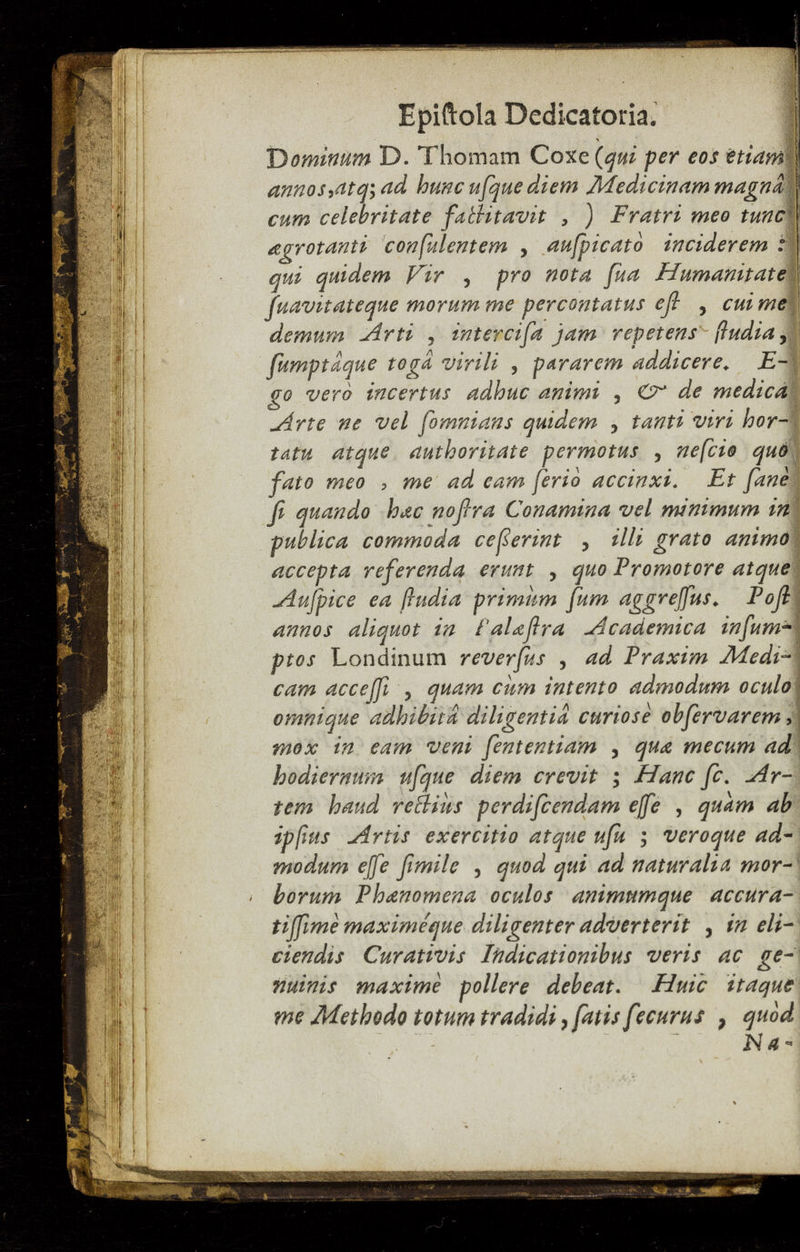 Epiſtola Dedicatoria.
Dominum D. Thomam Coxe (qui per eos etiam
annos, atq; ad hunc uſque diem Medicinam magnâ
cum celebritate factitavit , ) Fratri meo tunc
ægrotanti conſulentem , auſpicatò inciderem :
qui quidem Vir , pro nota ſua Humanitate
ſuavitateque morum me percontatus eſt , cui me
demum Arti , interciſa jam repetens ſtudia ,
ſumptâque togâ virili , pararem addicere. E-
go verò incertus adhuc animi , & de medicâ
Arte ne vel ſomnians quidem , tanti viri hor-
tatu atque authoritate permotus , neſcio quo
fato meo , me ad eam ſeriò accinxi. Et ſanè
ſi quando hæc noſtra Conamina vel minimum in
publica commoda ceſſerint , illi grato animo
accepta referenda erunt , quo Promotore atque
Auſpice ea ſtudia primùm ſum aggreſſus. Poſt
annos aliquot in Palæſtra Academica inſum-
ptos Londinum reverſus , ad Praxim Medi-
cam acceſſi , quam cùm intento admodum oculo
omnique adhibitâ diligentiâ curioſè obſervarem ,
mox in eam veni ſententiam , quæ mecum ad
hodiernum uſque diem crevit ; Hanc ſc. Ar-
tem haud rectiùs perdiſcendam eſſe , quàm ab
ipſius Artis exercitio atque uſu ; veroque ad-
modum eſſe ſimile , quod qui ad naturalia mor-
borum Phænomena oculos animumque accura-
tiſſimè maximéque diligenter adverterit , in eli-
ciendis Curativis Indicationibus veris ac ge-
nuinis maximè pollere debeat. Huic itaque
me Methodo totum tradidi , ſatis ſecurus , quòd
Na-